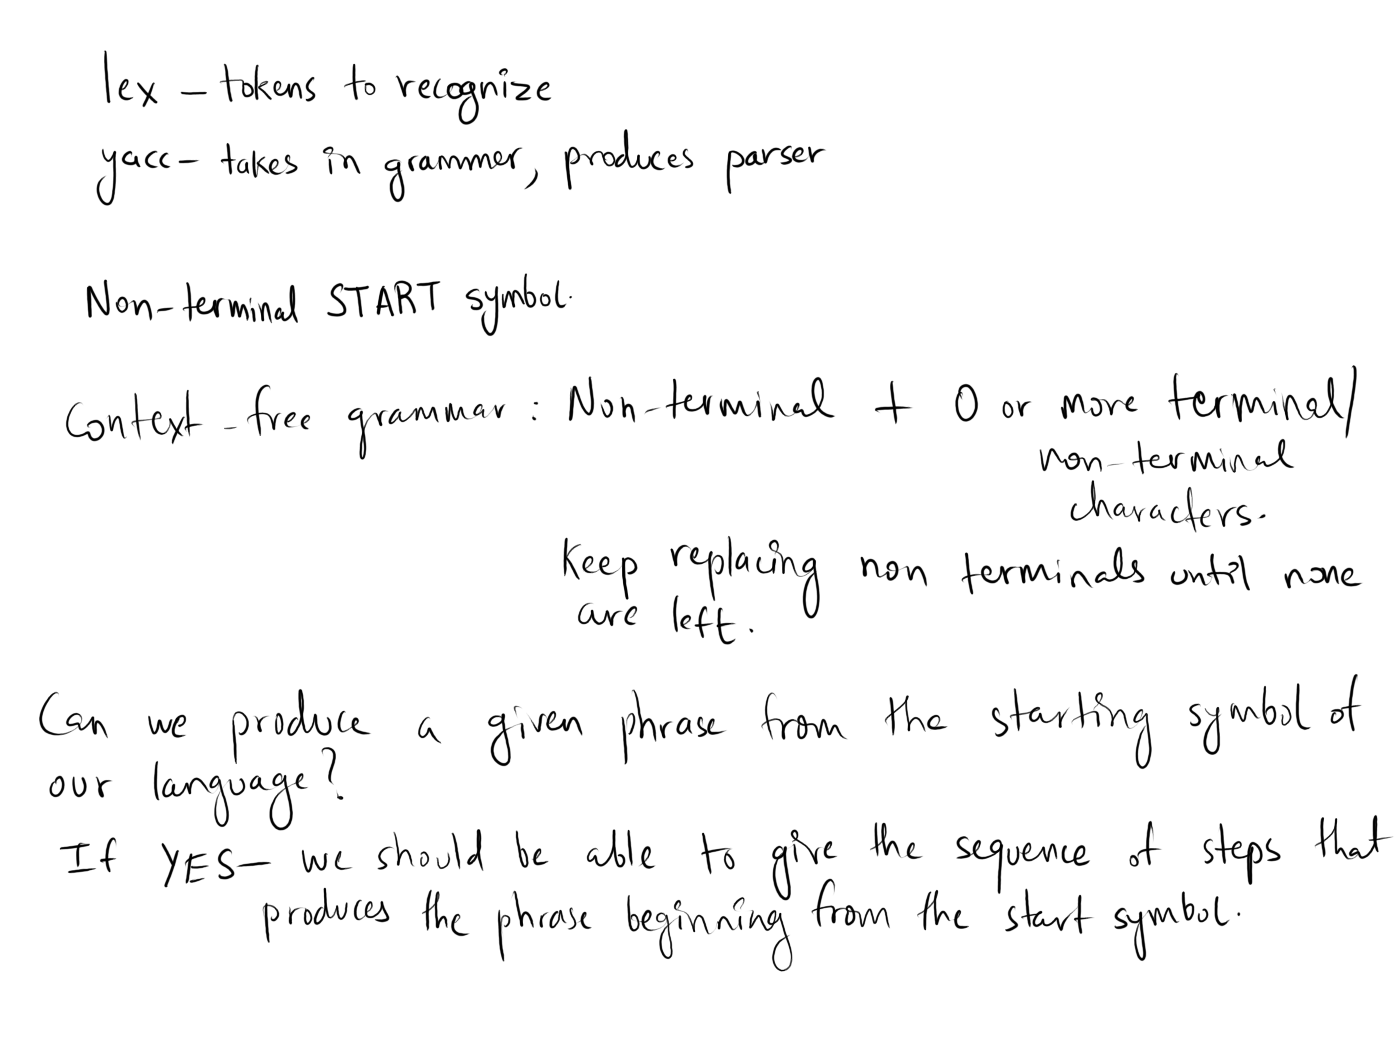 lex – tokens to recognize
yacc – takes in grammer, produces parser
Non-terminal START symbol.
Context-free grammar : Non-terminal + 0 or more terminal/
non-terminal
characters.
Keep replacing non terminals until none
are left.
Can we produce a given phrase from the starting symbol of
our language?
If YES – we should be able to give the sequence of steps that
produces the phrase beginning from the start symbol.